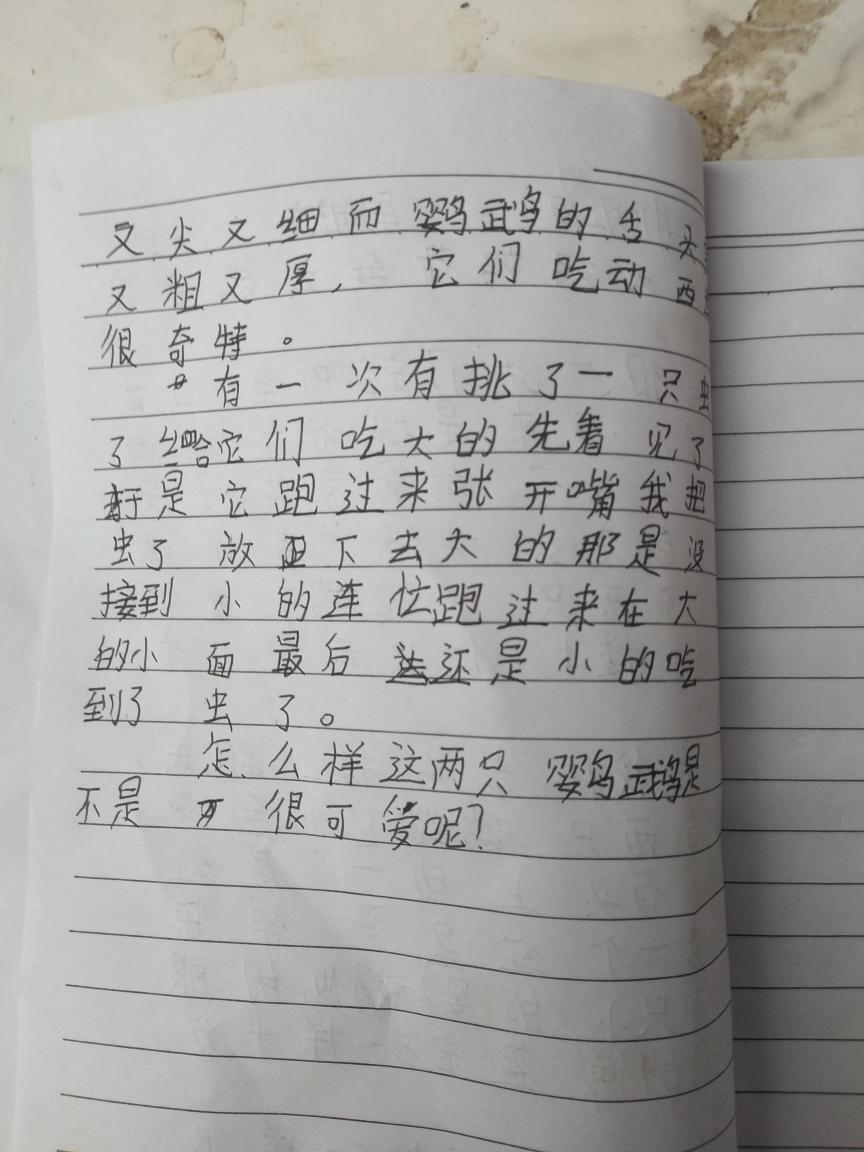 又尖又细而鹦鹉的舌头
又粗又厚， 它们吃动西
很奇特。
有一次有挑了一只虫
了给它们吃大的先着见了
于是它跑过来张开嘴我把
虫了放下去大的那是没
接到小的连忙跑过来在大
的小面最后还是小的吃
到了虫了。
怎么样这两只鹦鹉是
不是很可爱呢？